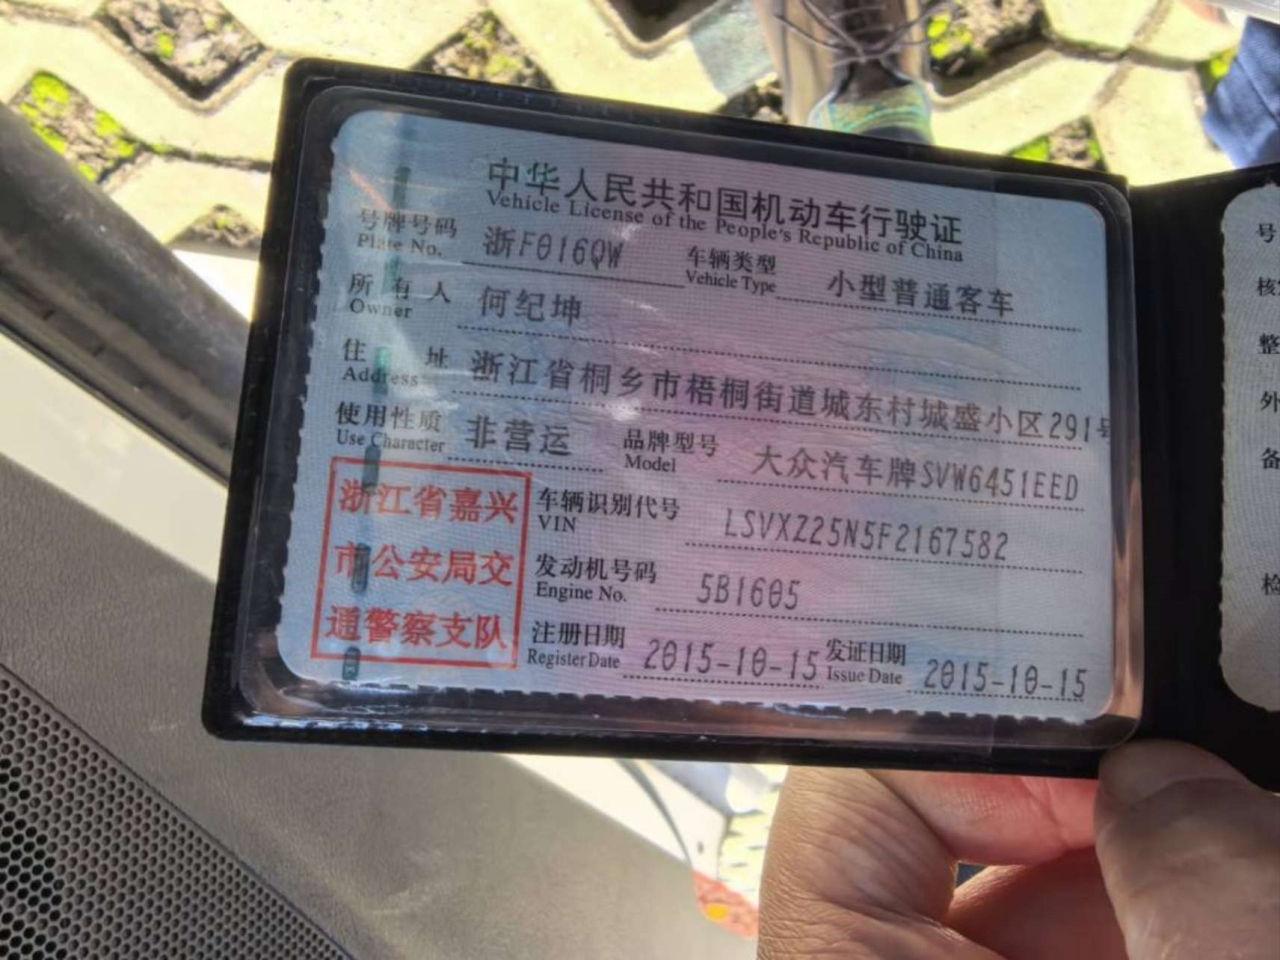 中华人民共和国机动车行驶证
Vehicle License of the People's Republic of China
号牌号码 浙F016QW 车辆类型 小型普通客车
Plate No. Vehicle Type
所有人 何纪坤
Owner
住址 浙江省桐乡市梧桐街道城东村城盛小区291号
Address
使用性质 非营运 品牌型号 大众汽车牌SVW6451EED
Use Character Model
浙江省嘉兴
市公安局交
通警察支队
车辆识别代号 LSVXZ25N5F2167582
VIN
发动机号码 5B1605
Engine No.
注册日期 2015-10-15 发证日期 2015-10-15
Register Date Issue Date
号
核
整
外
备
检